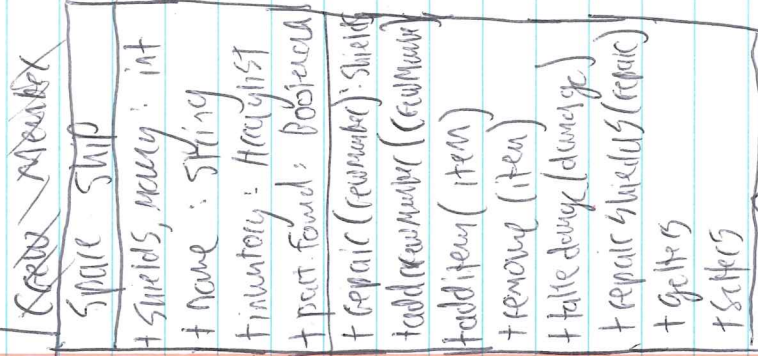 Crew Member
Space Ship
+ Shields, money : int
+ name : String
+ inventory : Arraylist
+ part found : Boolean
+ repair (crewmember) : Shields
+ addcrewmember (crewmember)
+ additem (item)
+ remove (item)
+ take damage (damage)
+ repair shields (repair)
+ getters
+ setters